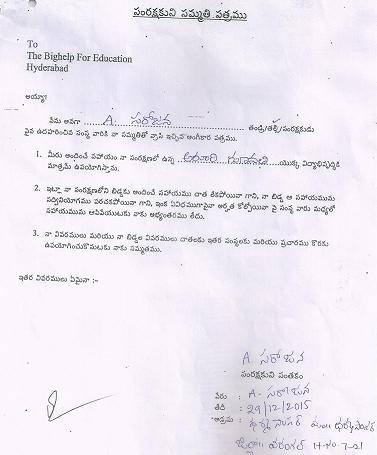 సంరక్షకుని సమ్మతి పత్రము
To
The Bighelp For Education
Hyderabad
అయ్యా!
నేను అనగా ....A. సరోజన.... తండ్రి/తల్లి/సంరక్షకుడు
పైన ఉదహరించిన సంస్థ వారికి నా సమ్మతితో వ్రాసి ఇచ్చిన అంగీకార పత్రము.
1. మీరు అందించే సహాయం నా సంరక్షణలో ఉన్న .... యొక్క విద్యాభివృద్ధికి
మాత్రమే ఉపయోగిస్తాను.
2. ఇట్లా నా సంరక్షణలోని బిడ్డకు అందించే సహాయము దాత లేకపోయినా గాని, నా బిడ్డ ఆ సహాయమును
సద్వినియోగము పరచకపోయినా గాని, ఇంక ఏవిధముగానైనా అర్హత కోల్పోయినా పై సంస్థ వారు మధ్యలో
సహాయమును ఆపివేయుటకు నాకు అభ్యంతరము లేదు.
3. నా వివరములు మరియు నా బిడ్డల వివరములు దాతలకు ఇతర సంస్థలకు మరియు ప్రచారము కొరకు
ఉపయోగించుకొనుటకు నాకు సమ్మతము.
ఇతర వివరములు ఏమైనా :-
A సరోజన
సంరక్షకుని సంతకం
పేరు : A- సరోజన
తేది : 29/12/2015
అడ్రసు :
జిల్లా వరంగల్ H-No-7-21